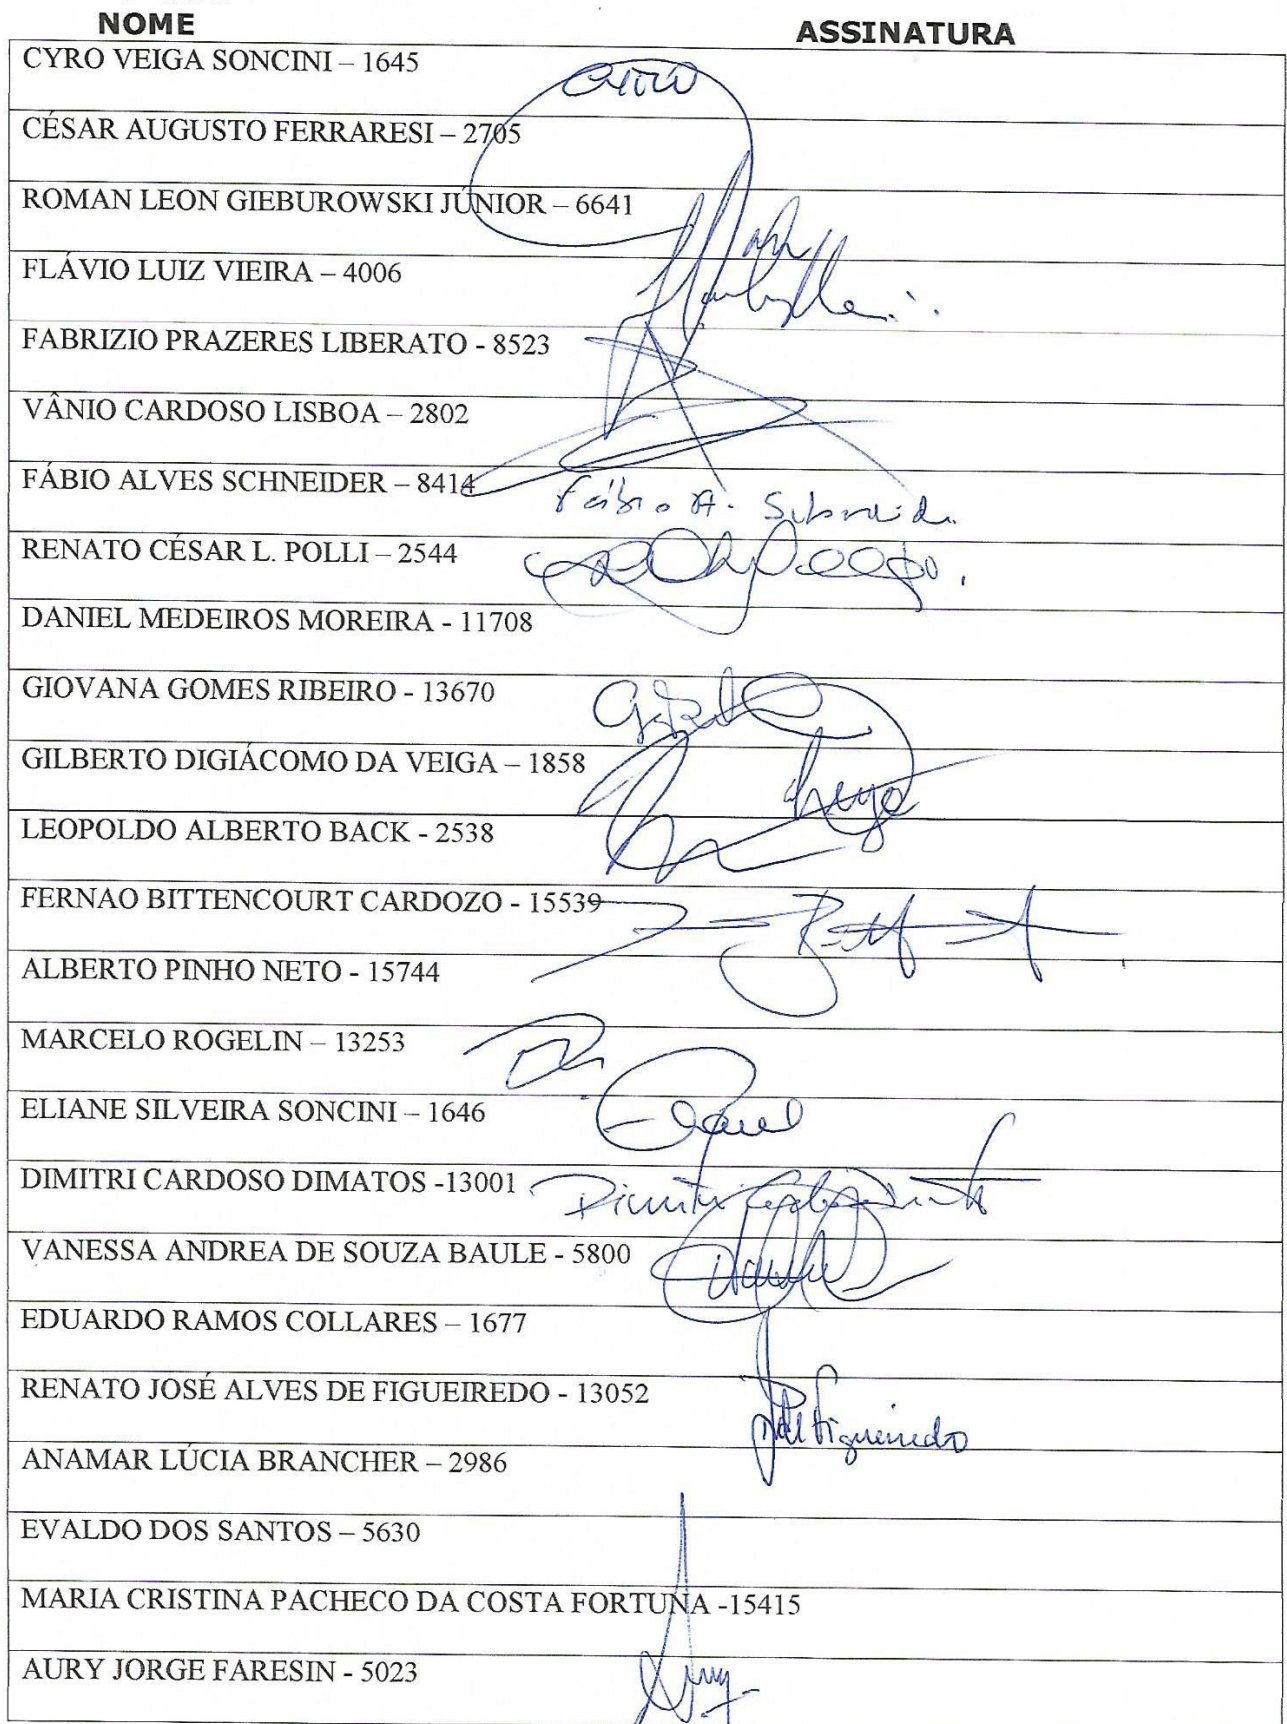 NOME ASSINATURA
CYRO VEIGA SONCINI – 1645
CÉSAR AUGUSTO FERRARESI – 2705
ROMAN LEON GIEBUROWSKI JÚNIOR – 6641
FLÁVIO LUIZ VIEIRA – 4006
FABRIZIO PRAZERES LIBERATO - 8523
VÂNIO CARDOSO LISBOA – 2802
FÁBIO ALVES SCHNEIDER – 8414
Fábio A.
RENATO CÉSAR L. POLLI – 2544
DANIEL MEDEIROS MOREIRA - 11708
GIOVANA GOMES RIBEIRO - 13670
GILBERTO DIGIÁCOMO DA VEIGA – 1858
LEOPOLDO ALBERTO BACK - 2538
FERNAO BITTENCOURT CARDOZO - 15539
ALBERTO PINHO NETO - 15744
MARCELO ROGELIN – 13253
ELIANE SILVEIRA SONCINI – 1646
DIMITRI CARDOSO DIMATOS -13001 Dimitri
VANESSA ANDREA DE SOUZA BAULE - 5800
EDUARDO RAMOS COLLARES – 1677
RENATO JOSÉ ALVES DE FIGUEIREDO - 13052
Figueiredo
ANAMAR LÚCIA BRANCHER – 2986
EVALDO DOS SANTOS – 5630
MARIA CRISTINA PACHECO DA COSTA FORTUNA -15415
AURY JORGE FARESIN - 5023